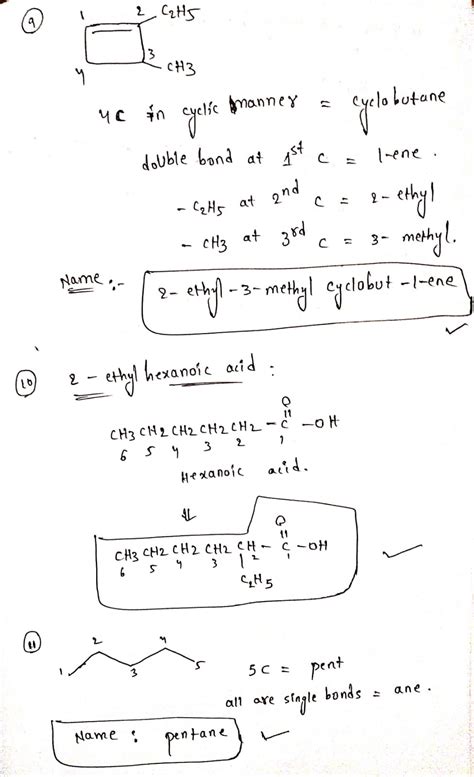 9
1 2 C2H5
3
4 CH3
4C in cyclic manner = cyclobutane
double bond at 1st C = 1-ene.
- C2H5 at 2nd C = 2-ethyl
- CH3 at 3rd C = 3-methyl.
Name :- 2-ethyl-3-methyl cyclobut-1-ene
10 2-ethyl hexanoic acid :
O
CH3 CH2 CH2 CH2 CH2 - C - OH
6 5 4 3 2 1
Hexanoic acid.
O
CH3 CH2 CH2 CH2 CH - C - OH
6 5 4 3 2 1
C2H5
11
2 4
1 3 5
5C = pent
all are single bonds = ane.
Name : pentane